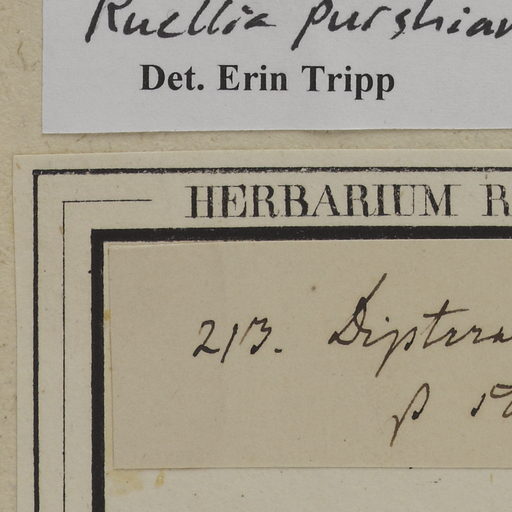 Ruellia purshian
Det. Erin Tripp
HERBARIUM R
213. Diptera
β 50